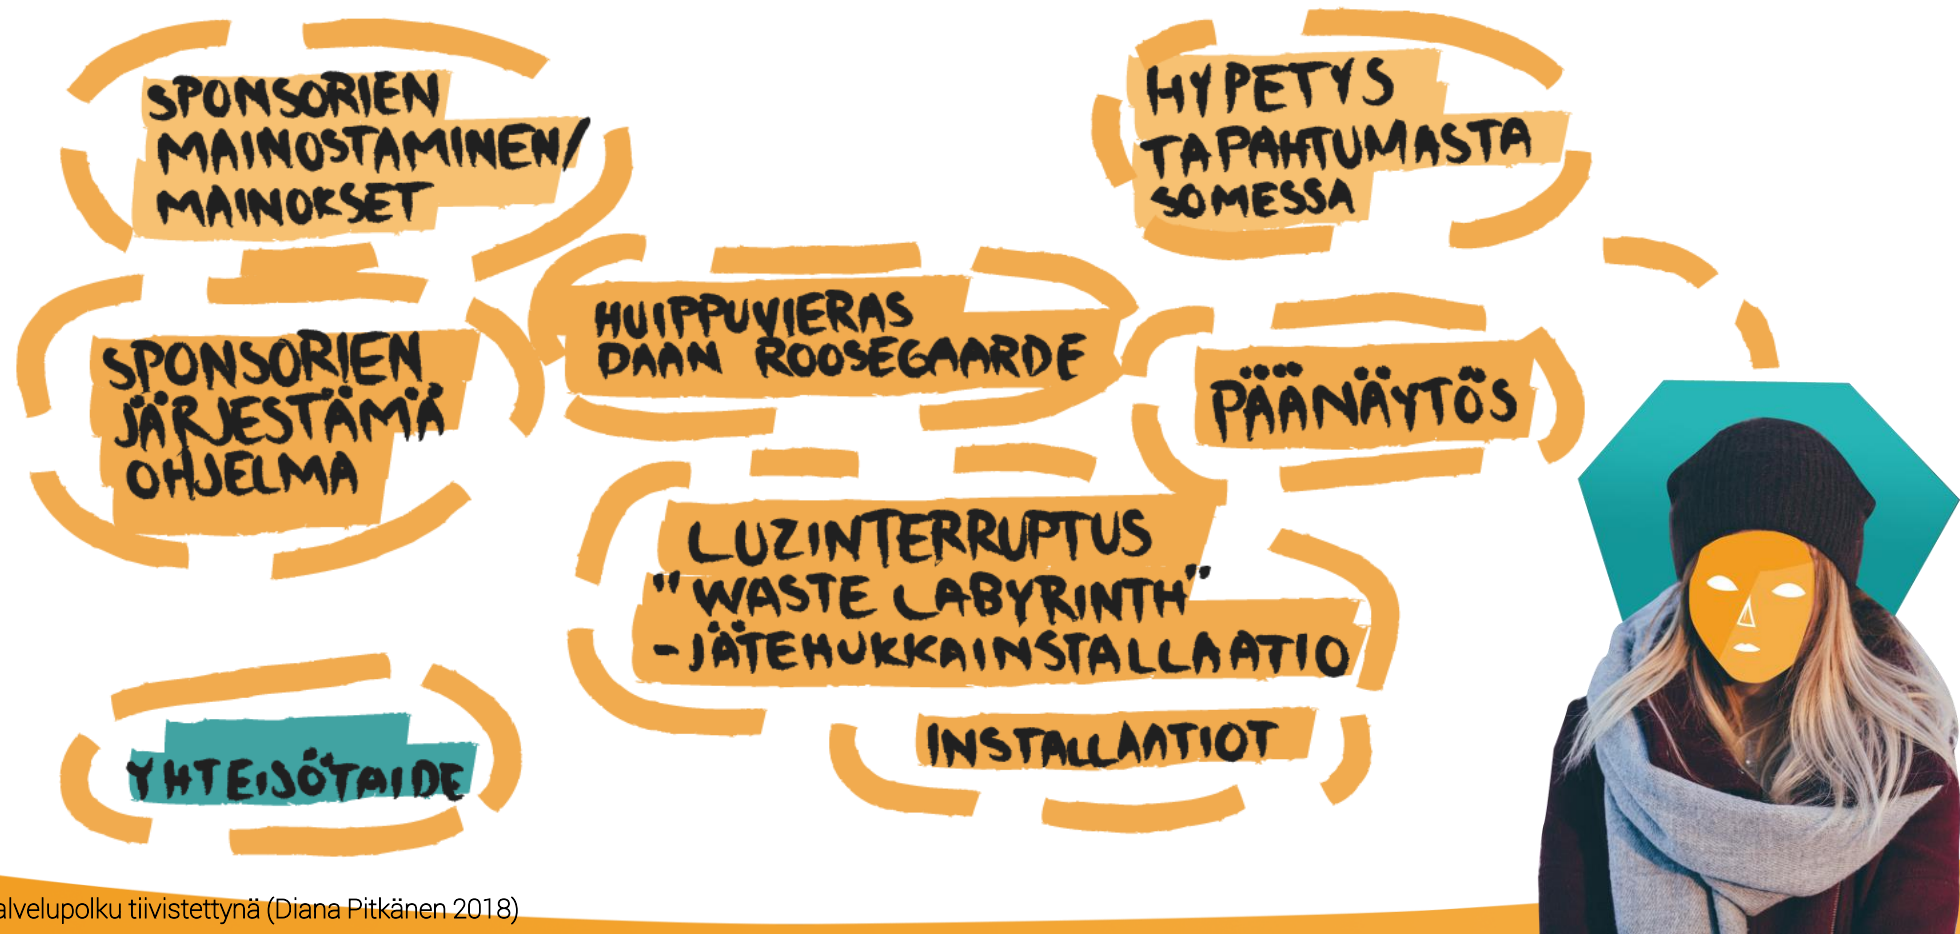 SPONSORIEN
MAINOSTAMINEN/
MAINOKSET
HYPETYS
TAPAHTUMASTA
SOMESSA
SPONSORIEN
JÄRJESTÄMÄ
OHJELMA
HUIPPUVIERAS
DAAN ROOSEGAARDE
PÄÄNÄYTÖS
LUZINTERRUPTUS
"WASTE LABYRINTH"
-JÄTEHUKKAINSTALLAATIO
INSTALLAATIOT
YHTEISÖTAIDE
alvelupolku tiivistettynä (Diana Pitkänen 2018)